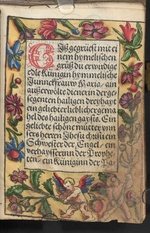 Biß gegrüeſt mit ei
nem hymeliſchen
grůß du erwirdige
edle Künigin hymmeliſche
Junnckfraw Maria: an
auſſerwölte dienerin der ge
ſegenten hailigen dreyhayt
ein geliebter lieblicher gema
hel des hailigen gayſts. Ein
geliebte ſchöne můtter vnn
ſers herren Jheſu chriſti ein
Schweſter der Engel / ein
verhayſſerynn der Prophe
ten / ein Küniginn der Pa